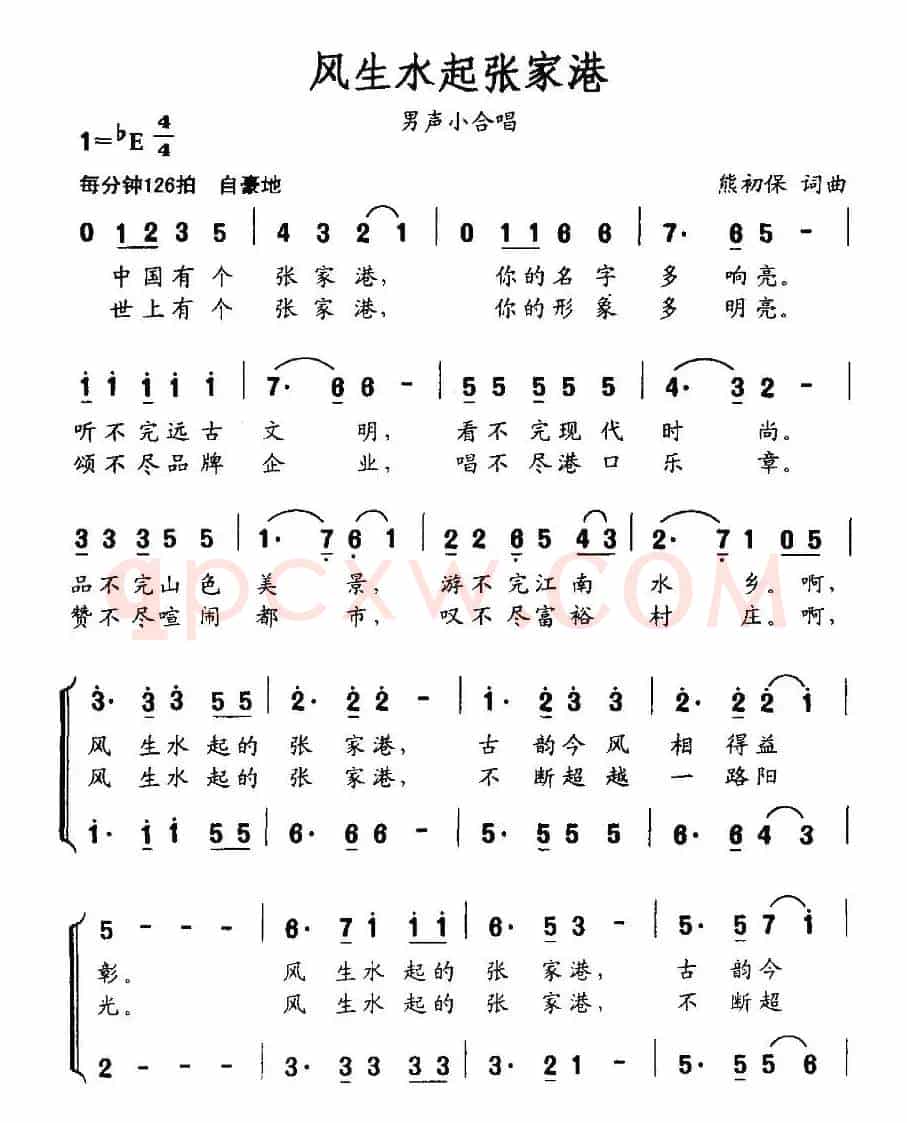 风生水起张家港
男声小合唱
1=♭E 4/4
每分钟126拍 自豪地 熊初保 词曲
0 1 2 3 5 | 4 3 2 1 | 0 1 1 6 6 | 7· 6 5 - |
中国有个 张家港, 你的名字 多 响亮。
世上有个 张家港, 你的形象 多 明亮。
i i i i i | 7· 6 6 - | 5 5 5 5 5 | 4· 3 2 - |
听不完远古 文 明, 看不完现代 时 尚。
颂不尽品牌 企 业, 唱不尽港口 乐 章。
3 3 3 5 5 | 1· 7̣ 6̣ 1 | 2 2 6̣ 5 4 3 | 2· 7̣ 1 0 5 |
品不完山色 美 景, 游不完江南 水 乡。啊,
赞不尽喧闹 都 市, 叹不尽富裕 村 庄。啊,
3̇· 3̇ 3̇ 5 5 | 2̇· 2̇ 2̇ - | i· 2̇ 3̇ 3̇ | 2̇· 2̇ 2̇ i |
风 生水 起的 张 家港, 古 韵今 风 相 得益
风 生水 起的 张 家港, 不 断超 越 一 路阳
i· i i 5 5 | 6· 6 6 - | 5· 5 5 5 | 6· 6 4 3 |
5 - - - | 6· 7 i i i | 6· 5 3 - | 5· 5 7 i |
彰。 风 生水 起的 张 家港, 古 韵今
光。 风 生水 起的 张 家港, 不 断超
2 - - - | 3· 3 3 3 3 | 3· 2 1 - | 5· 5 5 6 |
qpcxw.COM